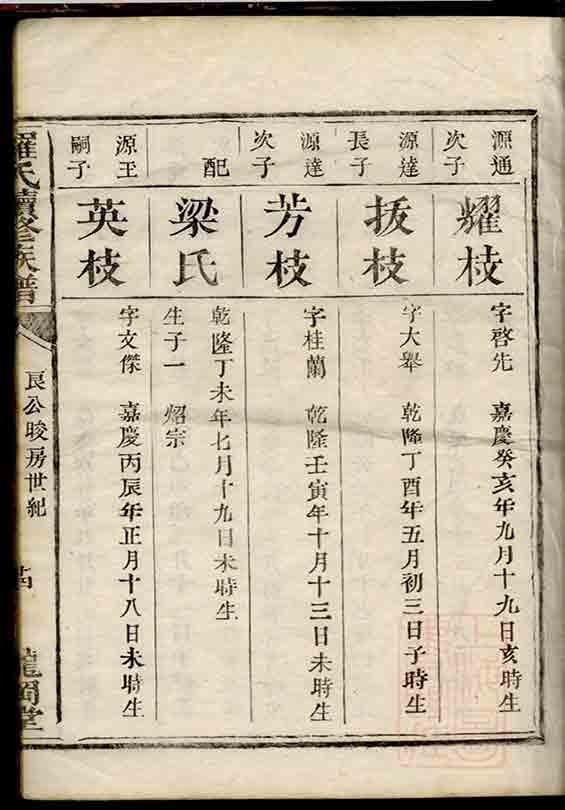 源通
次子
耀枝
字啓先 嘉慶癸亥年九月十九日亥時生
源達
長子
拔枝
字大舉 乾隆丁酉年五月初三日子時生
源達
次子
芳枝
字桂蘭 乾隆壬寅年十月十三日未時生
配
梁氏
乾隆丁未年七月十九日未時生
生子一 炤宗
源王
嗣子
英枝
字文傑 嘉慶丙辰年正月十八日未時生
羅氏續修族譜
良公晙房世紀
龍岡堂